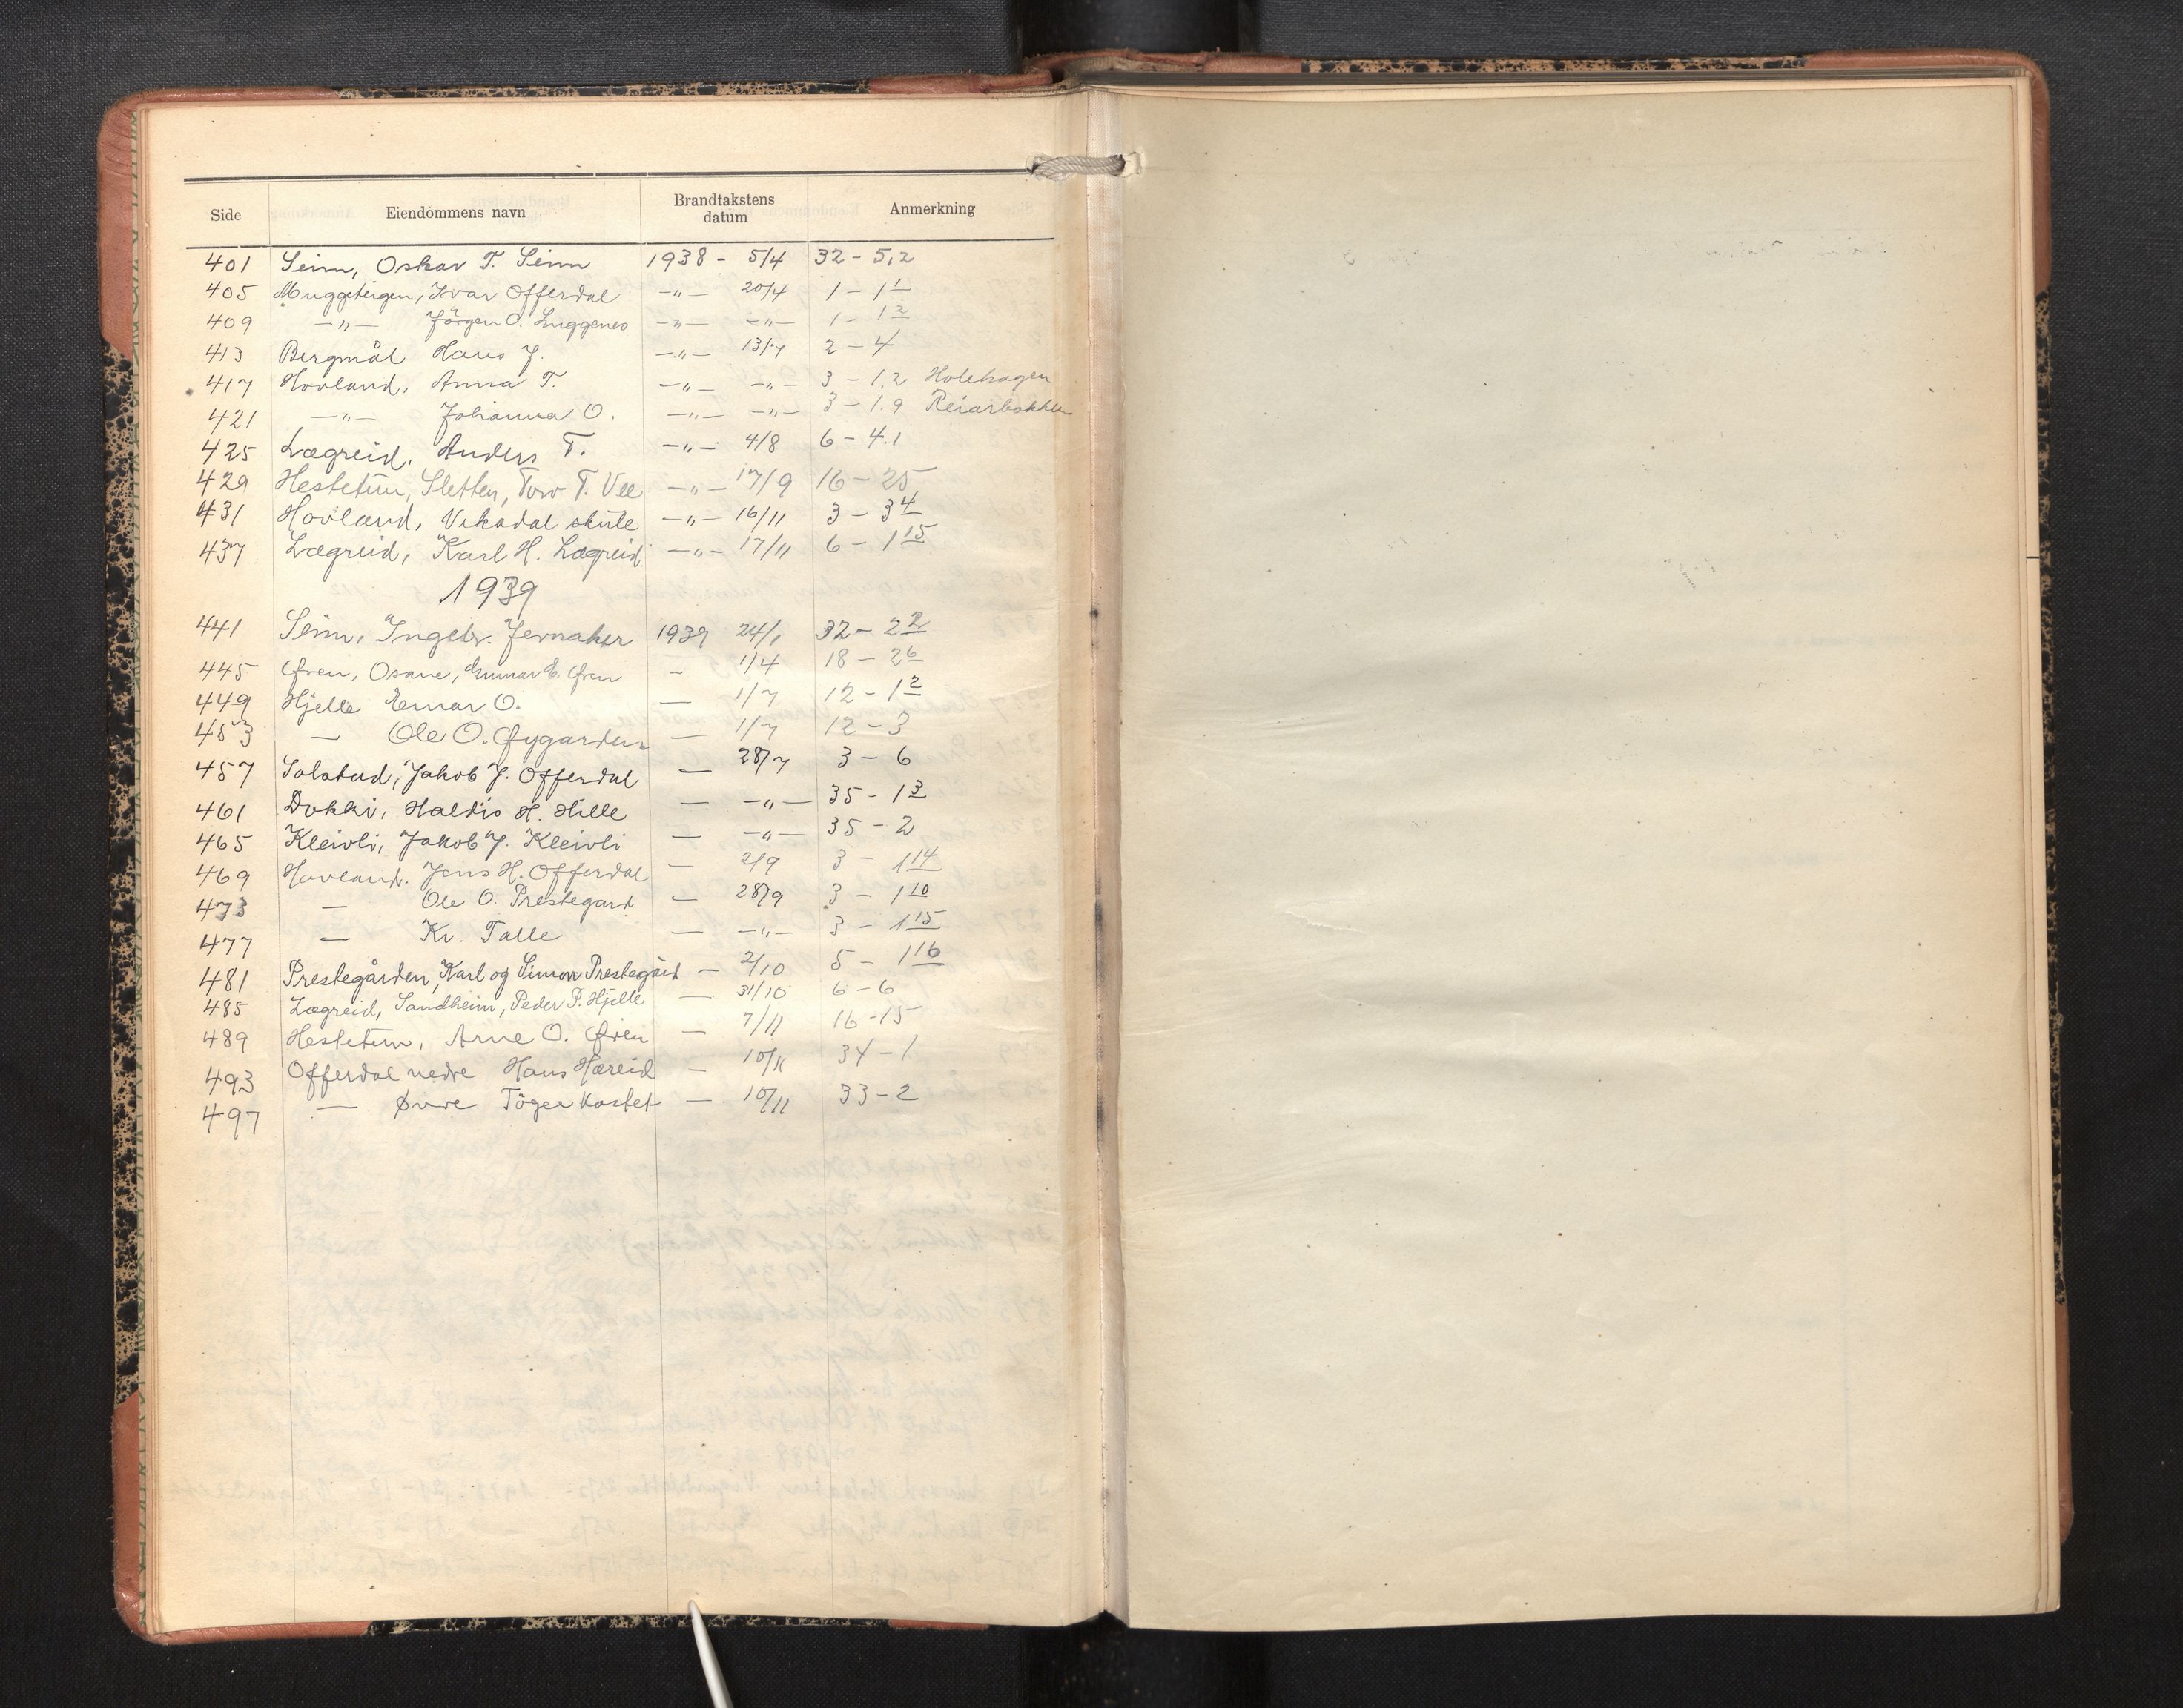 Side Eiendommens navn Brandtakstens datum Anmerkning
401 Seim, Oskar T. Seim 1938 - 5/4 32 - 5,2
405 Muggeteigen, Ivar Offerdal -"- 20/4 1 - 1 1
409 -"- Jörgen O. Luggenes -"- -"- 1 - 1 2
413 Bergmål Hans J. -"- 13/7 2 - 4
417 Hovland, Anna T. -"- -"- 3 - 1,2 Holehagen
421 -"- Johanna O. -"- -"- 3 - 1.9 Reiarbakken
425 Lægreid, Anders T. -"- 4/8 6 - 4.1
429 Hestetun, Sletten, Tov T. Vee -"- 17/9 16 - 25
431 Hovland, Vikadal skule -"- 16/11 3 - 3 4
437 Lægreid, Karl H. Lægreid -"- 17/11 6 - 1 15
1939
441 Seim, Ingebr. Jernaker 1939 24/1 32 - 2 2
445 Øren, Osane, Gunnar E. Øren - 1/4 18 - 2 6
449 Hjelle Einar O. - 1/7 12 - 1 2
453 - Ole O. Øygarden - 1/7 12 - 3
457 Solstad, Jakob J. Offerdal - 28/7 3 - 6
461 Dokki, Haldis H. Hille - -"- 35 - 1 3
465 Kleivli, Jakob J. Kleivli - -"- 35 - 2
469 Hovland. Jens H. Offerdal - 2/9 3 - 1 14
473 - Ole O. Prestegard - 28/9 3 - 1 10
477 - Kr. Talle - -"- 3 - 1 15
481 Prestegården, Karl og Simon Prestegård - 2/10 5 - 1 16
485 Lægreid, Sandheim, Peder P. Hjelle - 31/10 6 - 6
489 Hestetun, Arne O. Øren - 7/11 16 - 15
493 Offerdal nedre Hans Hæreid - 10/11 34 - 1
497 - Øvre Töger Kostet - 10/11 33 - 2